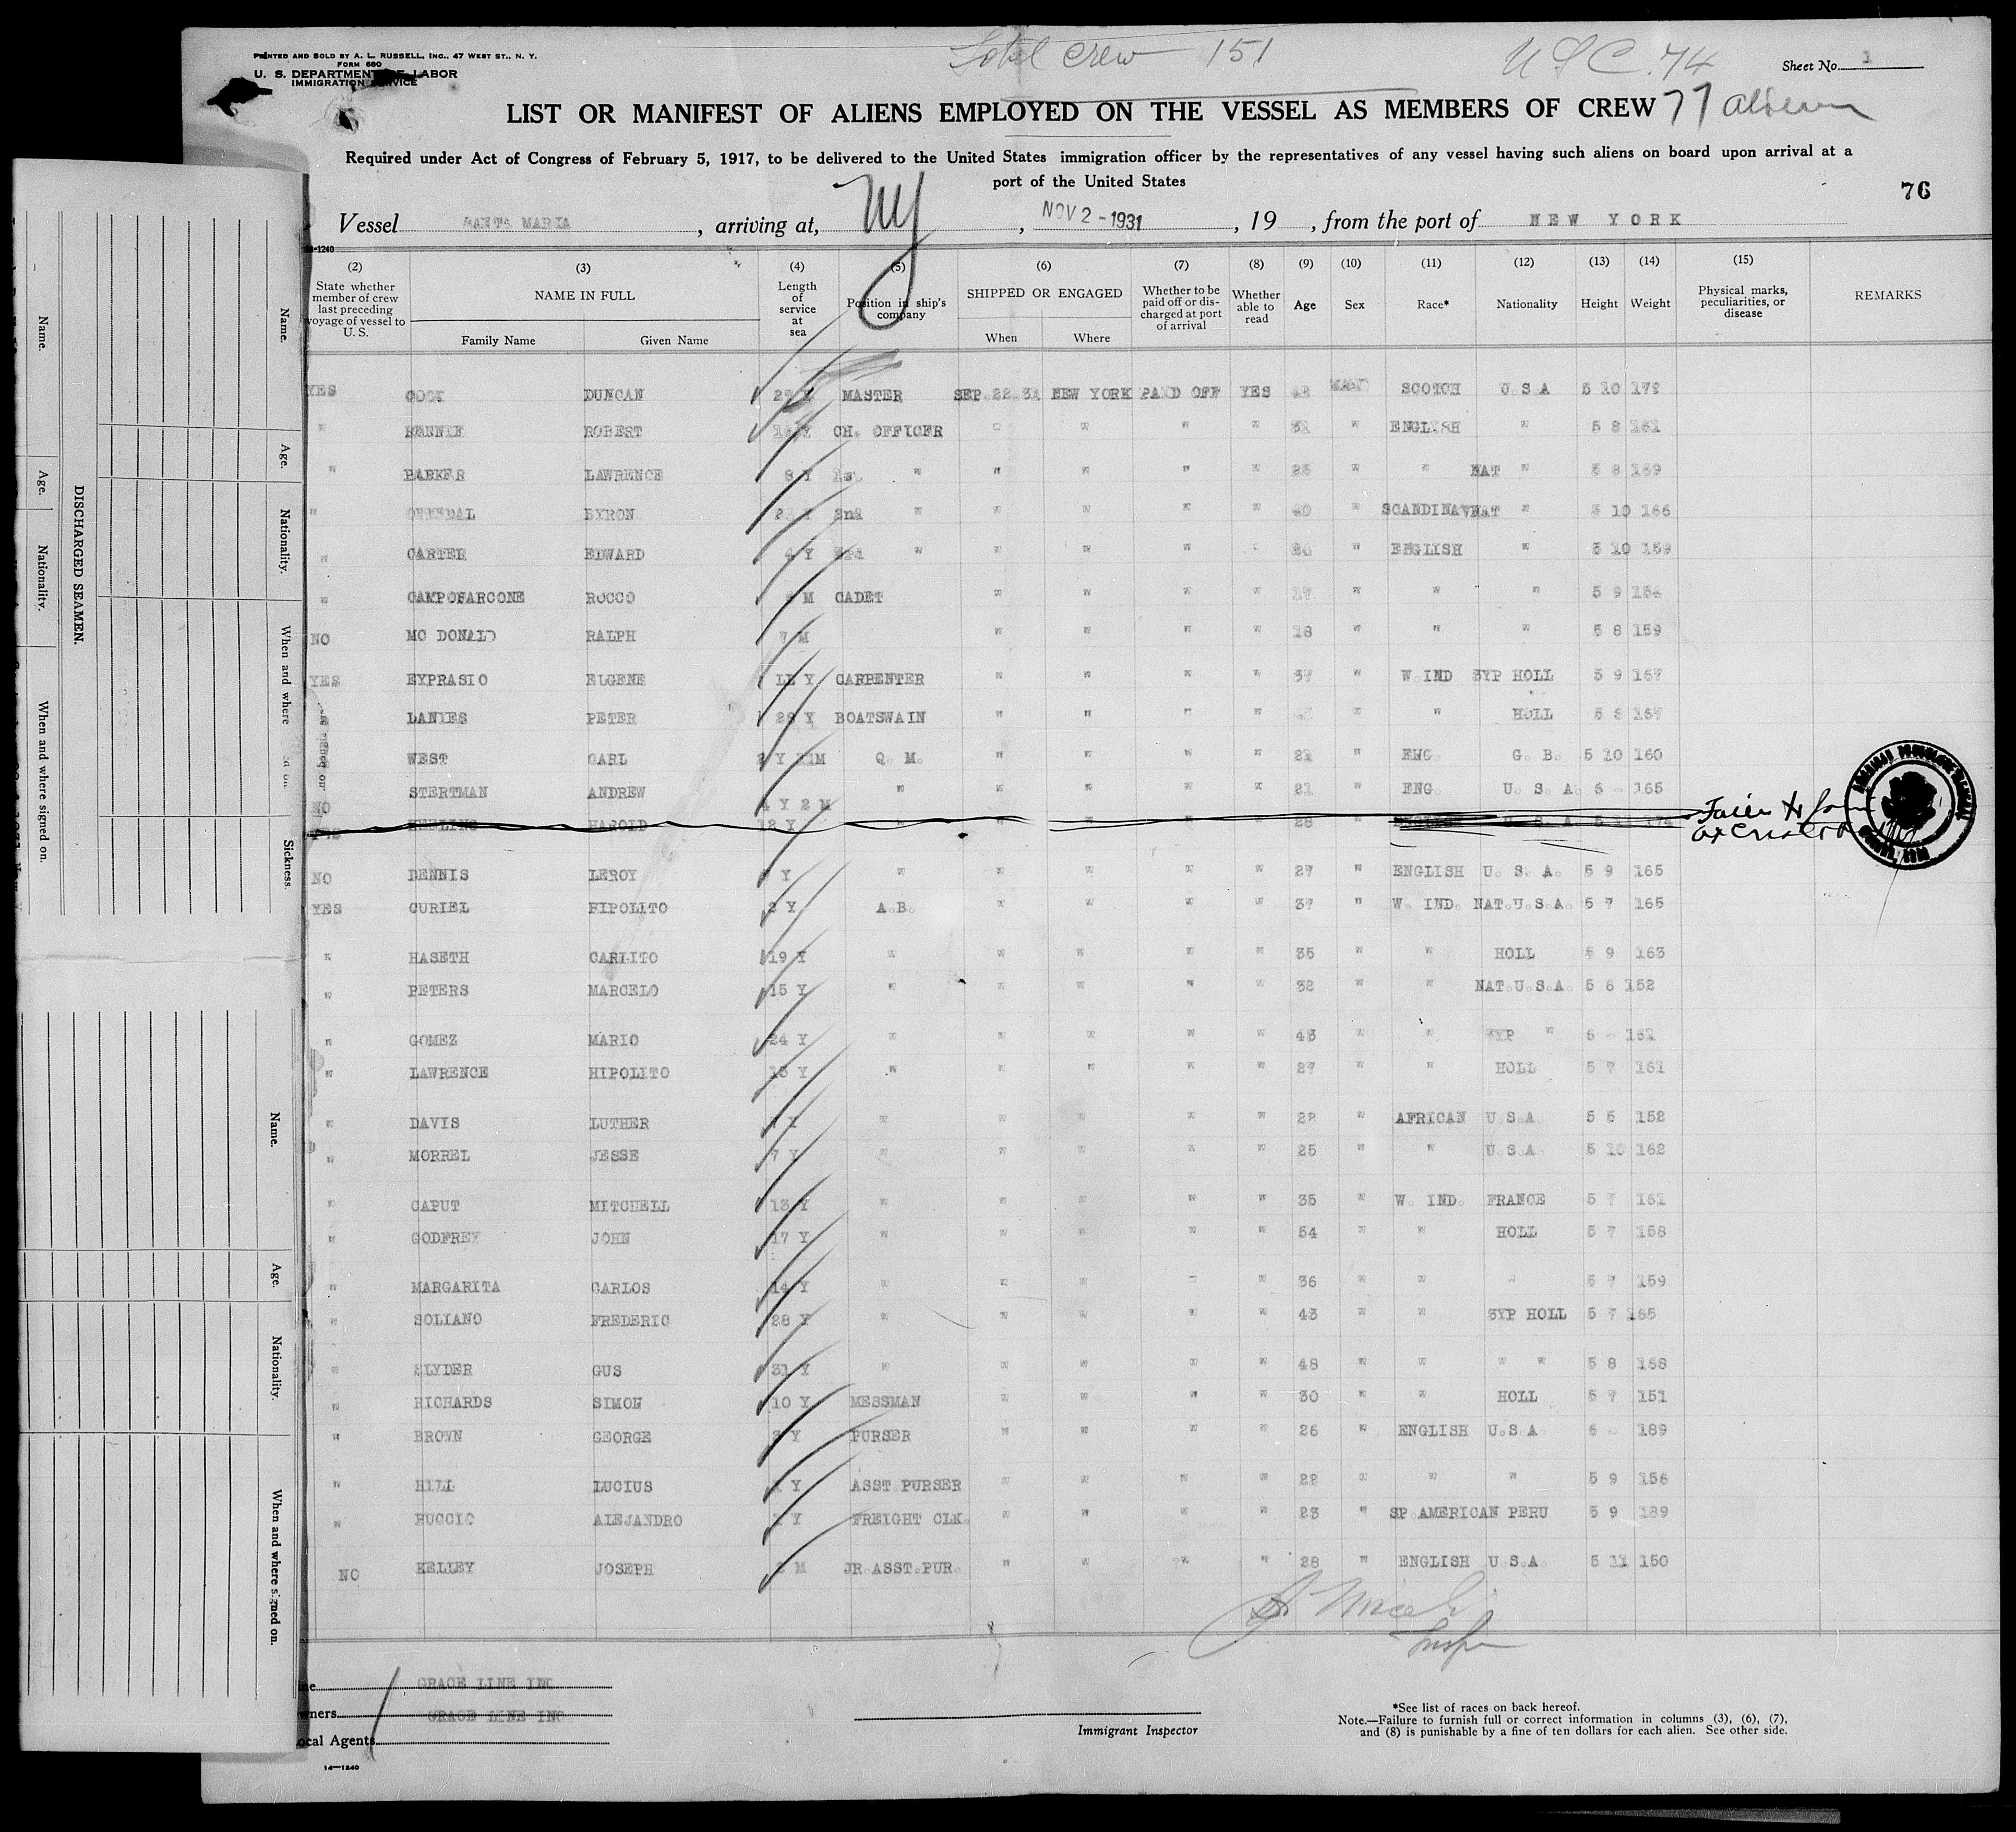 PRINTED AND SOLD BY A. L. RUSSELL, INC., 47 WEST ST., N. Y.
FORM 680
U. S. DEPARTMENT OF LABOR
IMMIGRATION SERVICE
Total Crew 151
U S C. 74
Sheet No. 1
LIST OR MANIFEST OF ALIENS EMPLOYED ON THE VESSEL AS MEMBERS OF CREW 77 aliens
Required under Act of Congress of February 5, 1917, to be delivered to the United States immigration officer by the representatives of any vessel having such aliens on board upon arrival at a
port of the United States
76
Vessel SANTA MARIA, arriving at, NY, NOV 2-1931, 19 , from the port of NEW YORK
14-1240
(2) (3) (4) (5) (6) (7) (8) (9) (10) (11) (12) (13) (14) (15)
State whether member of crew last preceding voyage of vessel to U. S. NAME IN FULL Length of service at sea Position in ship's company SHIPPED OR ENGAGED Whether to be paid off or discharged at port of arrival Whether able to read Age Sex Race* Nationality Height Weight Physical marks, peculiarities, or disease REMARKS
Family Name Given Name When Where
YES COOK DUNCAN Y MASTER SEP 22 31 NEW YORK PAID OFF YES SCOTCH U S A 5 10 179
" RENNIE ROBERT Y CH. OFFICER " " " " 31 " ENGLISH " 5 8 161
" PARKER LAWRENCE 8 Y 1st " " " " " 25 " " NAT " 5 8 169
" BYRON Y 2nd " " " " " 40 " SCANDINAV NAT " 5 10 166
" CARTER EDWARD 4 Y 3rd " " " " " " ENGLISH " 5 10 159
" CAMPOFARCONE ROCCO M CADET " " " " 17 " " " 5 9 154
NO MC DONALD RALPH 7 M " " " " 18 " " " 5 8 159
YES EYPRASIO EUGENE Y CARPENTER " " " " 37 " W IND 3YP HOLL 5 9 167
" LANIES PETER 28 Y BOATSWAIN " " " " " " HOLL 5 8 167
" WEST CARL 2 Y 11M Q. M. " " " " 21 " ENG. G. B. 5 10 160
NO STERTMAN ANDREW 4 Y 2 M " " " " " 21 " ENG. U. S. A. 6 - 165
HAROLD 12 Y 28 U. S. A
NO DENNIS LEROY Y " " " " " 27 " ENGLISH U. S. A. 5 9 165
YES CURIEL HIPOLITO 2 Y A.B. " " " " 37 " W. IND. NAT.U.S.A. 5 7 165
" HASETH CARLITO 19 Y " " " " " 35 " " HOLL 5 9 163
" PETERS MARCELO 15 Y " " " " " 32 " " NAT.U.S.A. 5 6 152
" GOMEZ MARIO 24 Y " " " " " 43 " " 3YP " 6 - 161
" LAWRENCE HIPOLITO 13 Y " " " " " 27 " " HOLL 5 7 161
" DAVIS LUTHER Y " " " " " 22 " AFRICAN U.S.A. 5 6 152
" MORREL JESSE 7 Y " " " " " 25 " " U.S.A. 5 10 162
" CAPUT MITCHELL 13 Y " " " " " 35 " W. IND. FRANCE 5 7 161
" GODFREY JOHN 17 Y " " " " " 54 " " HOLL 5 7 158
" MARGARITA CARLOS 14 Y " " " " " 36 " " " 5 7 159
" SOLIANO FREDERIC 28 Y " " " " " 43 " " 3YP HOLL 5 7 165
" SLYDER GUS 31 Y " " " " " 48 " " " " 5 8 168
" RICHARDS SIMON 10 Y MESSMAN " " " " 30 " " HOLL 5 7 151
" BROWN GEORGE Y PURSER " " " " 26 " ENGLISH U.S.A 6 - 189
" HILL LUCIUS Y ASST.PURSER " " " " 22 " " " 5 9 156
" PUCCIO ALEJANDRO Y FREIGHT CLK. " " " " 23 " SP AMERICAN PERU 5 9 189
NO KELLEY JOSEPH 2 M JR.ASST.PUR. " " " " 28 " ENGLISH U.S.A. 5 11 150
Insp
GRACE LINE INC
GRACE LINE INC
Local Agents
14-1240
Immigrant Inspector
*See list of races on back hereof.
Note.—Failure to furnish full or correct information in columns (3), (6), (7),
and (8) is punishable by a fine of ten dollars for each alien. See other side.
DISCHARGED SEAMEN.
Name. Age. Nationality. When and where signed on.
Name. Age. Nationality. When and where Sickness.
Name. Age. Nationality. When and where signed on.